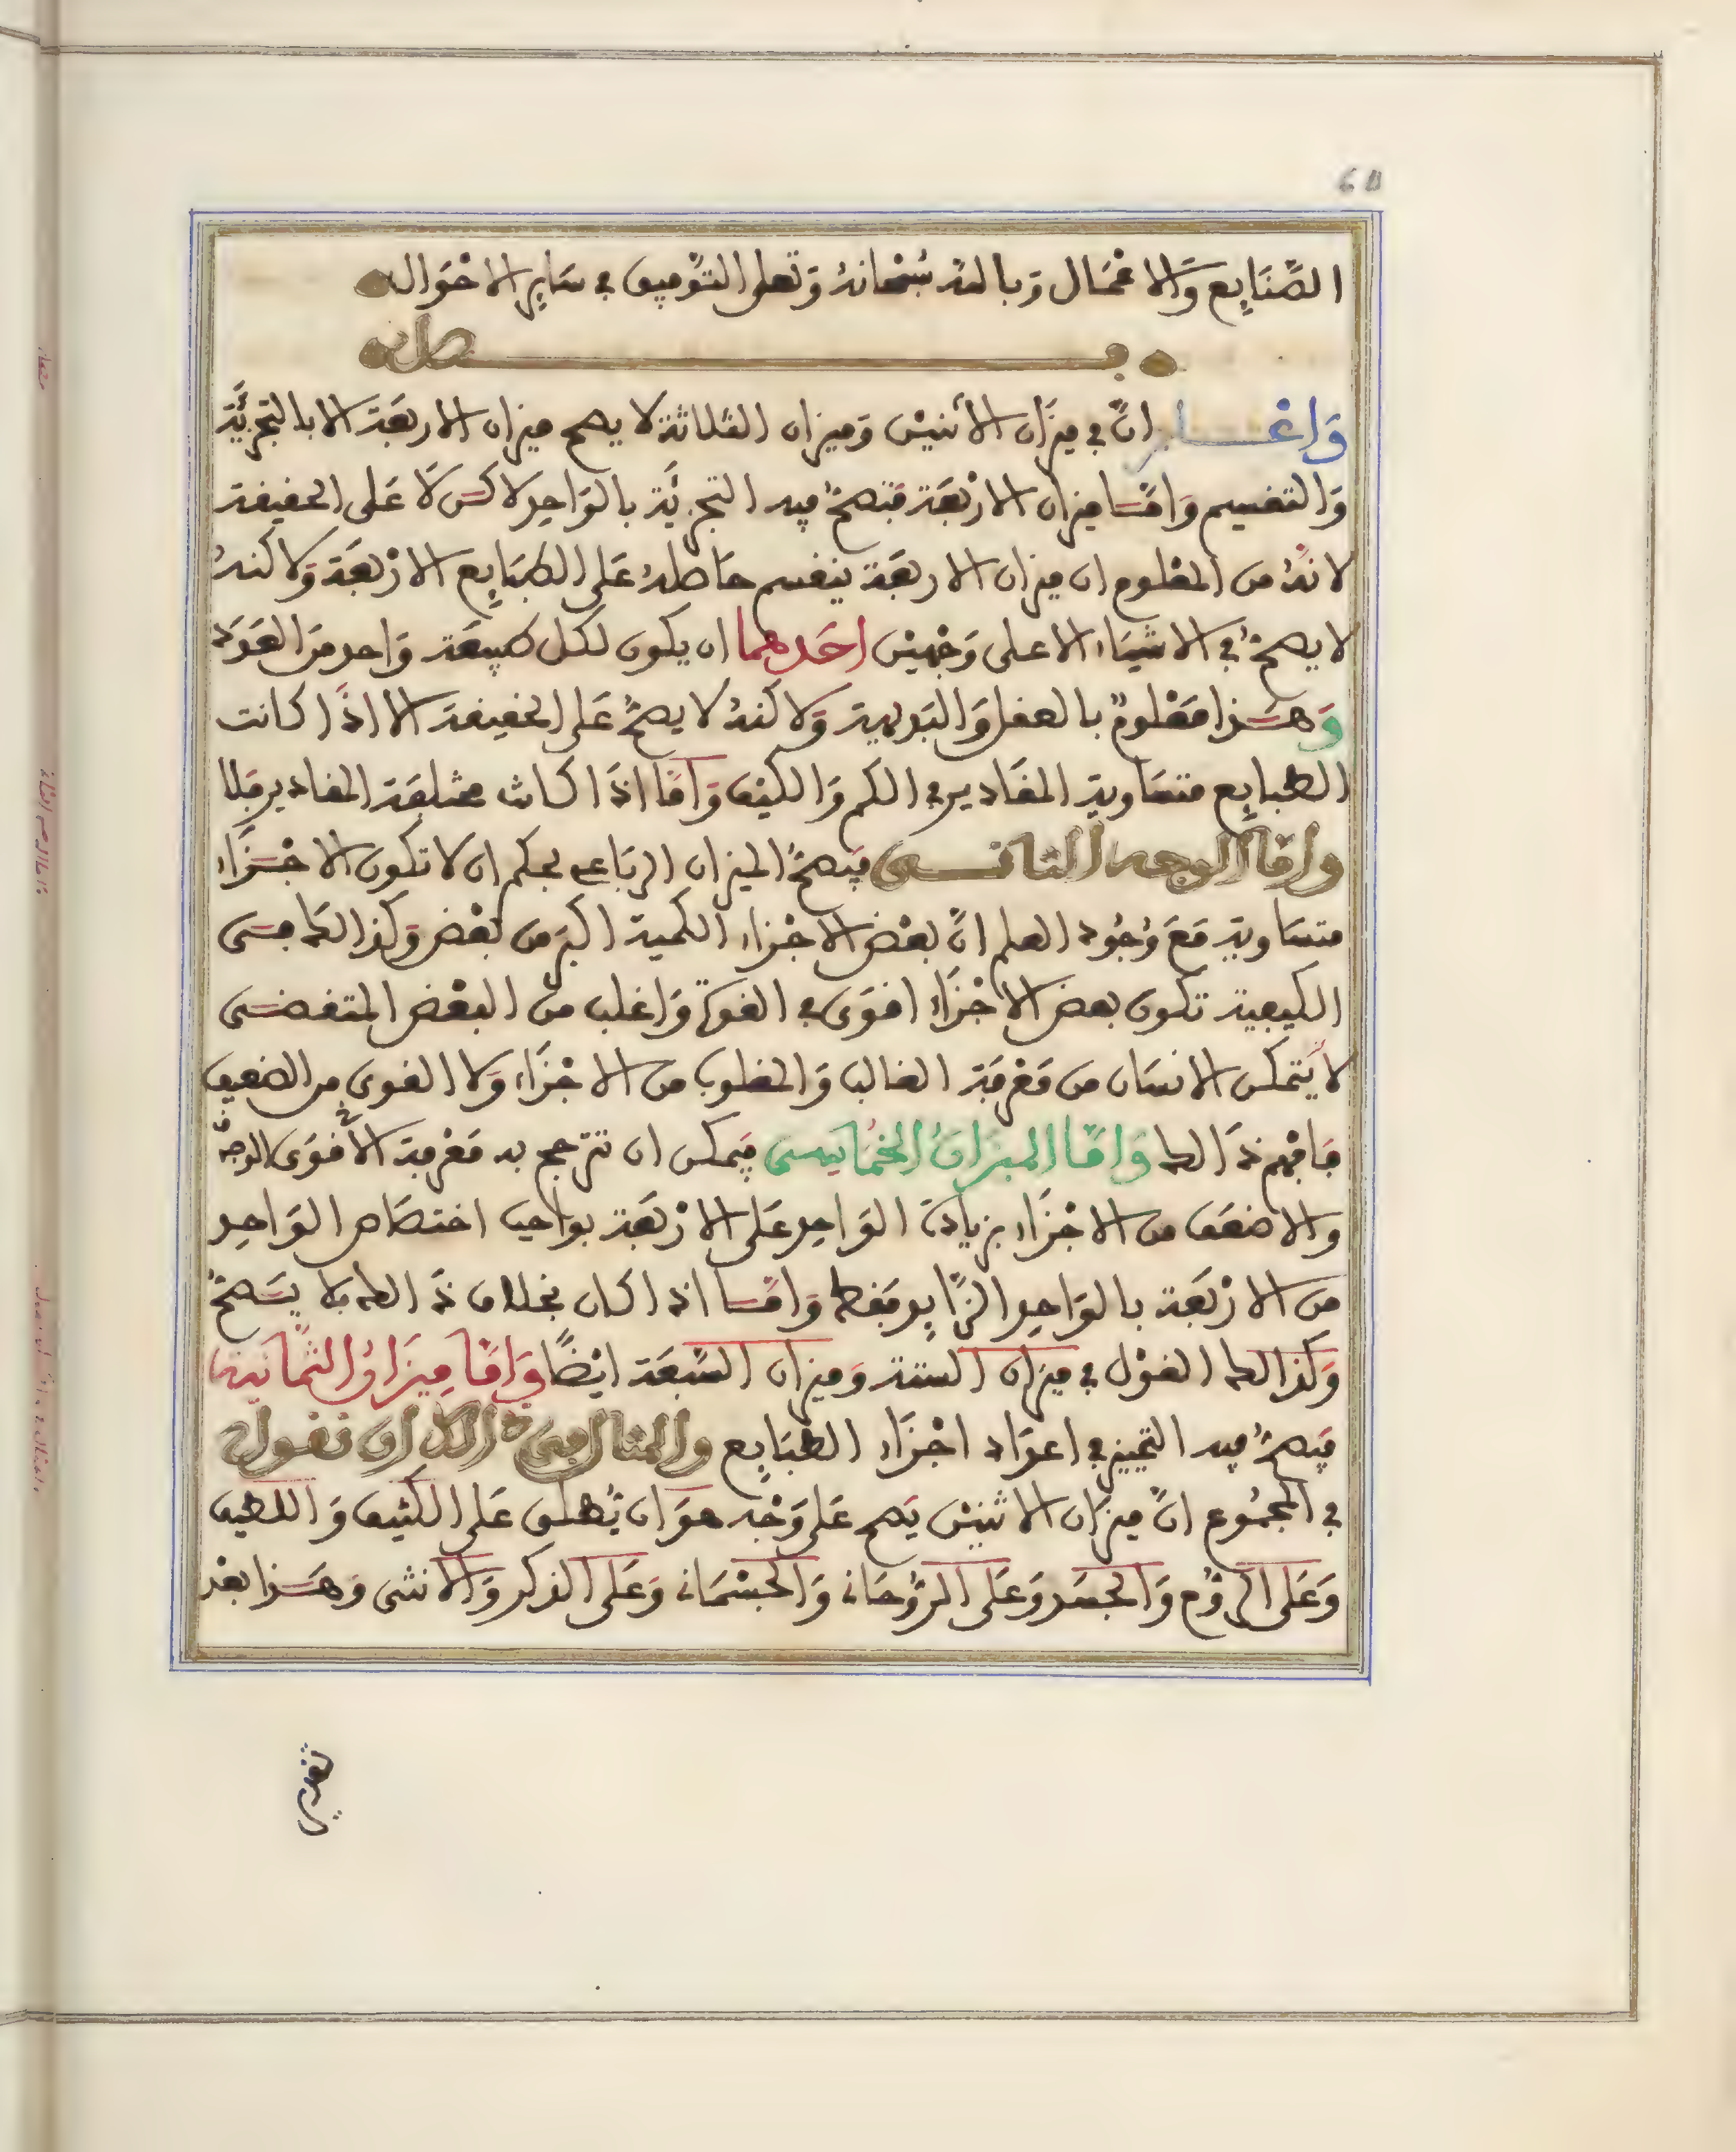 الصَّنَايِع وَالاعْمَال وَبالله سُبْحَانهُ وَتعلى التوْفيق في سَايِر الاحْوَال
فصل
وَاعْلم انَّ في ميزَان الاثنيْن وَميزان الثلاثة لا يصح ميزان الاربعَة الا بالتجزيَة
وَالتقسيم وَامَّا ميزان الارْبعَة فتصحّ فيه التجزيَة بالوَاحِد لاكن لَا عَلى الحقيقة
لانهُ من المعْلوم ان ميزان الاربعَة ينقسم حَاصلهُ عَلى الطبَايِع الارْبعَة وَلاكنهُ
لا يصحُّ في الاشيَاء الا على وَجْهيْن احَدهما ان يكون لكل طبيعَة وَاحد منَ العَدَد
وَهَذا مَعْلومٌ بالعقل وَالبَديهية وَلاكنهُ لا يصحُّ عَلى الحقيقة الا اذَا كانت
الطبايِع متسَاوية المقَادير في الكم وَالكيْف وَامَّا اذَا كانت مختلفة المقادير فلا
وامَّا الوجه الثاني فيَصحُّ الميزان الربَاعي بحكم ان لا تكون الاجْزَاء
متسَاوية مَعَ وُجُود العلم انَّ بعْض الاجْزاء الكمية اكبرَ من بعْض وَكذالك من
الكيفية تكون بعض الاجْزَاء اقوَى في القوة وَاغلب من البعْض المتقضى
لا يَتمكن الانسَان من مَعْرفَة الغالب وَالمغلوب من الاجْزَاء وَلا القوى من الضعيف
فافْهم ذَالك وَامَّا الميزَانُ الخمَاسى فيَمكن ان تترجح به مَعْرفة الاقوَى الوجه
والاضعَف من الاجْزَاء بزيادة الوَاحِد عَلى الارْبعَة بواجب اختصَاص الوَاحِد
من الارْبَعَة بالوَاحِد الزَّايِد فقط وَامَّا اذا كان بخلاف ذَالك فلا يَصحُّ
وَكذالك القوْل في ميزان الستة وَميزان السَّبعَة ايْضًا وَامَّا مِيزَانُ الثمَانية
فيَصحُّ فيه التمييز في اعدَاد اجْزَاء الطبَايِع والمثال في ذالك ان نقول
في المجمُوع انَّ ميزَان الاثنيْن يَصح عَلى وَجْه هوَ ان يُطلق عَلى الكثيف وَاللطيف
وَعَلى الروُح وَالجسَد وَعَلى الرُّوحَاني وَالجسْمَاني وَعَلى الذكر وَالانثى وَهَذا بعْد
تقدير